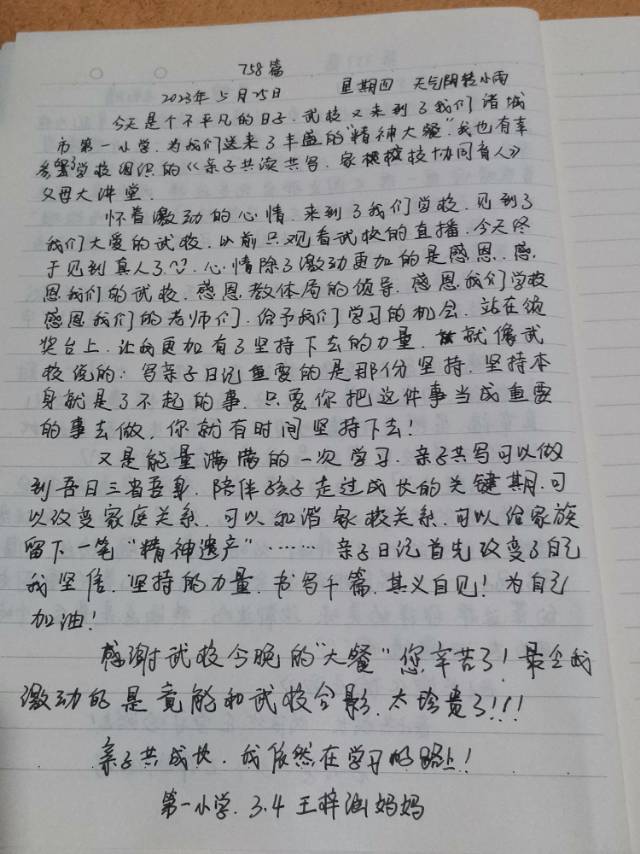 758篇
2023年5月25日 星期四 天气阴转小雨
今天是个不平凡的日子,武校又来到了我们诸城
市第一小学.为我们送来了丰盛的"精神大餐".我也有幸
参加了学校组织的《亲子共读共写.家校协同育人》
父母大讲堂.
怀着激动的心情.来到了我们学校.见到了
我们大爱的武校.以前只观看武校的直播.今天终
于见到真人了.心情除了激动更加的是感恩.感
恩我们的武校.感恩教体局的领导.感恩我们学校
感恩我们的老师们.给予我们学习的机会.站在领
奖台上.让我更加有了坚持下去的力量.就像武
校说的:写亲子日记重要的是那份坚持.坚持本
身就是了不起的事.只要你把这件事当成重要
的事去做.你就有时间坚持下去!
又是能量满满的一次学习.亲子共写可以做
到吾日三省吾身.陪伴孩子走过成长的关键期.可
以改变家庭关系.可以和谐家校关系.可以给家族
留下一笔"精神遗产"……亲子日记首先改变了自己
我坚信.坚持的力量.书写千篇.其义自见!为自己
加油!
感谢武校今晚的"大餐"您辛苦了!最令我
激动的是竟能和武校合影.太珍贵了!!!
亲子共成长.我依然在学习的路上!
第一小学.3.4 王梓涵妈妈